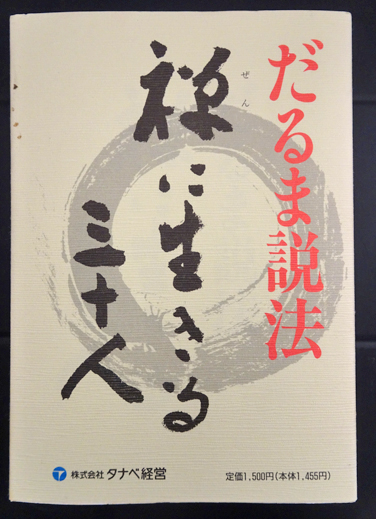 だるま説法
禅に生きる
ぜん
三十人
株式会社 タナベ経営
定価1,500円(本体1,455円)